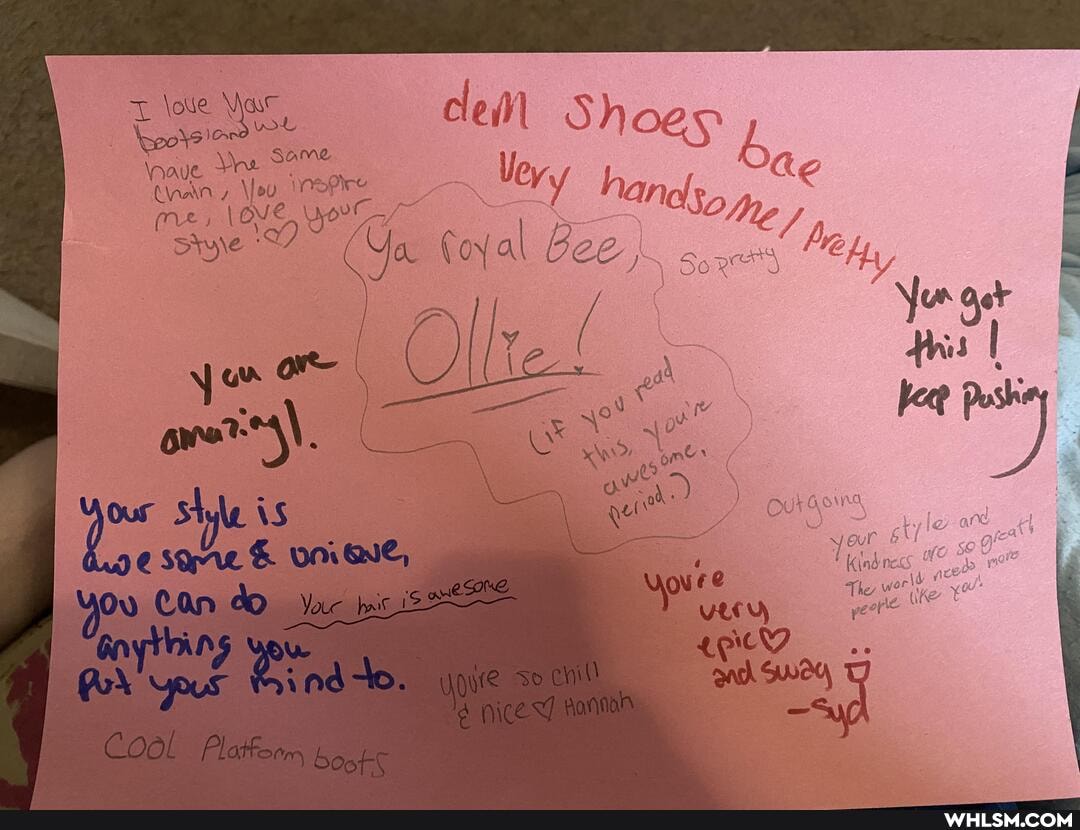 I love your
boots and we
have the same
chain, you inspire
me, love your
style! ♡
dem shoes bae
Very handsome / pretty
Ya royal Bee,
Ollie!
(if you read
this, you're
awesome,
period.)
So pretty
You got
this!
keep pushing
you are
amazing!.
your style is
awesome & unique,
you can do
anything you
put your mind to.
Your hair is awesome
Outgoing
your style and
kindness are so great!
The world needs more
people like you!
you're
very
epic ♡
and swag
-Syd
you're so chill
& nice ♡ Hannah
COOL Platform boots
WHLSM.COM